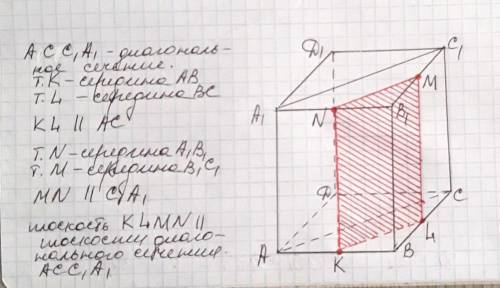 АСС₁А₁ - диагональ-
ное сечение.
т. К - середина АВ
т. L - середина ВС
КL || АС
т. N - середина А₁В₁
т. М - середина В₁С₁
MN || C₁A₁
плоскость KLMN ||
плоскости диаго-
нального сечения
АСС₁А₁
D₁
C₁
M
A₁
N
B₁
D
C
L
A
K
B